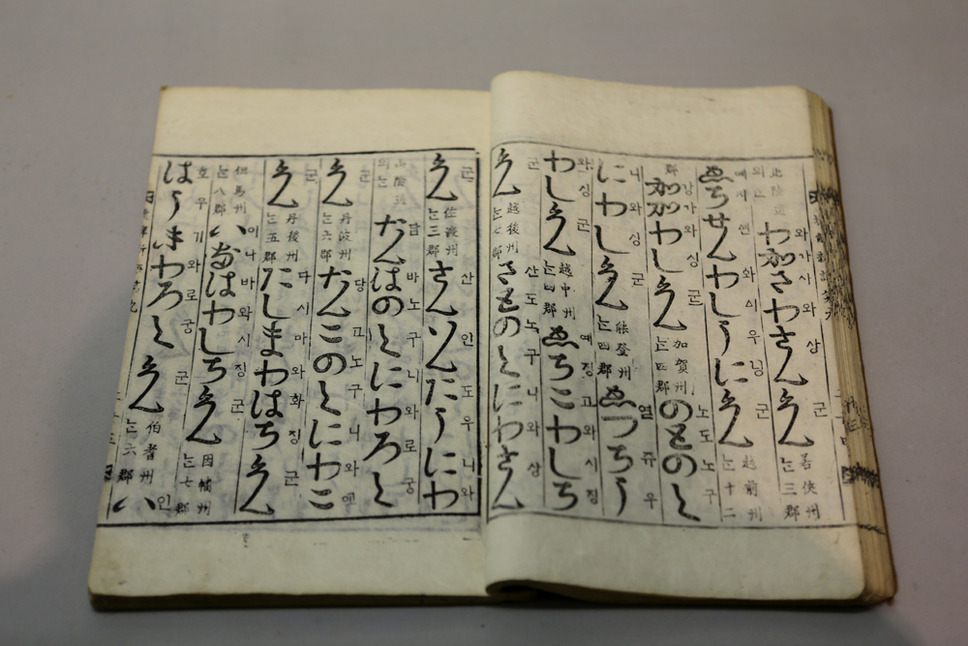 北陸道의는 わかさわさんくん 若狹州는三郡
와가사와상군
ゑちせんわしうにくん 越前州는十二
예지연와시우닝군
郡 加加わしくん 加賀州는四郡 のとのく
강가와싱군 노도노구
にわしくん 能登州는四郡 ゑつちう
니와싱군 열쥬우
わしくん 越中州는四郡 ゑちこわしち
와싱군 예징고와시징
くん 越後州는七郡 さとのくにわさん
군 산도노구니와상
くん 佐渡州는三郡 さんいんたうにわ
군 산인도우니와
山陰道의는 たんはのくにわろく
담바노구니와로궁
くん 丹波州는六郡 たんこのくにわこ
군 당고노구니와
くん 丹後州는五郡 たしまわはちくん
군 다시마와화징군
但馬州는八郡 いなはわしちくん 因幡州는七郡
이나바와시징군
はうきわろくくん 伯耆州는六郡 い
호우기와로궁군 인